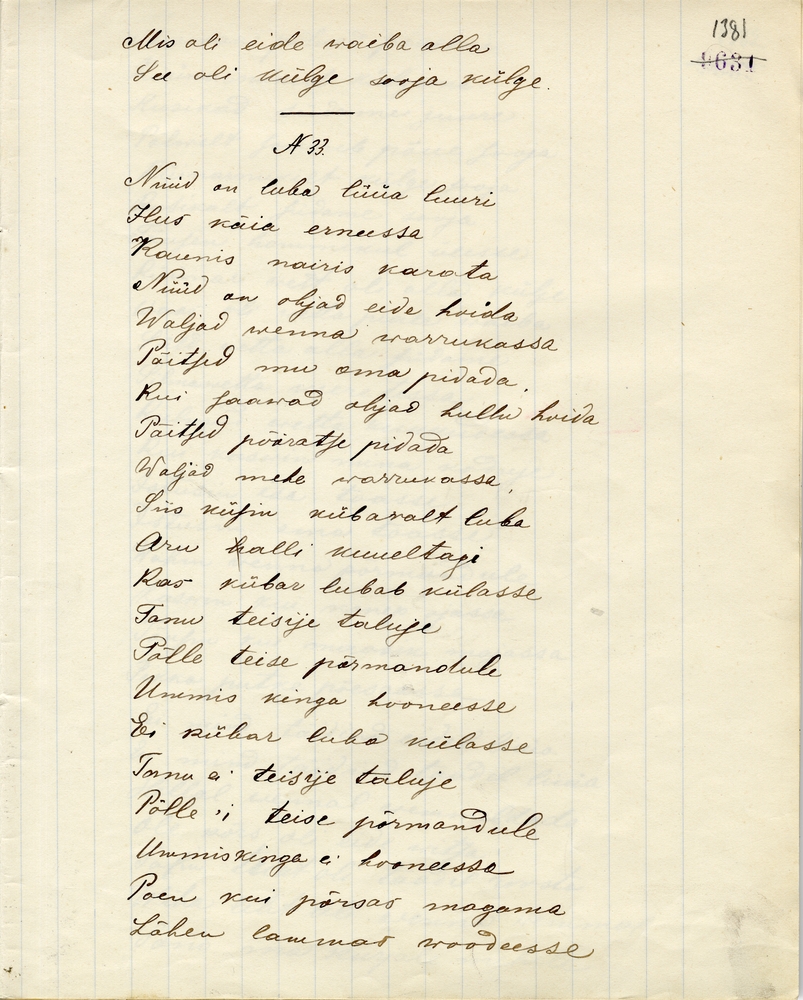 1381
4631
Mis oli eide waiba alla
See oli külge sooja külge.
N 33.
Nüüd on luba lüüa luuri
Ilus käia erneessa
Kaunis nairis karata
Nüüd on ohjad eide hoida
Waljad wenna warrukassa
Päitsed mu oma pidada,
Kui saawad ohjad hullu hoida
Päitsed pööratse pidada
Waljad mehe warrukassa,
Siis küsin kübaralt luba
Aru halli kuueltagi
Kas kübar lubab külasse
Tanu teisije taluje
Põlle teise põrmandule
Ummis kinga hooneesse
Ei kübar luba külasse
Tanu ei teisije taluje
Põlle 'i teise põrmandule
Ummiskinga ei hooneessa
Poen kui põrsas magama
Lähen lammas woodeesse